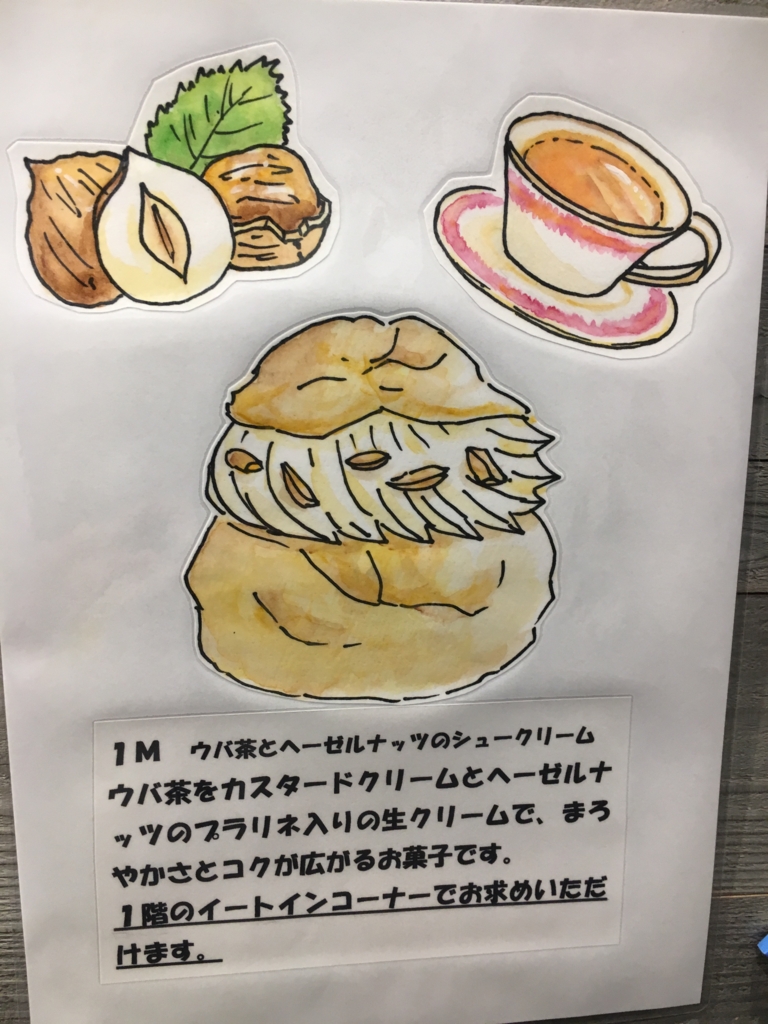 1M ウバ茶とヘーゼルナッツのシュークリーム
ウバ茶をカスタードクリームとヘーゼルナ
ッツのプラリネ入りの生クリームで、まろ
やかさとコクが広がるお菓子です。
１階のイートインコーナーでお求めいただ
けます。